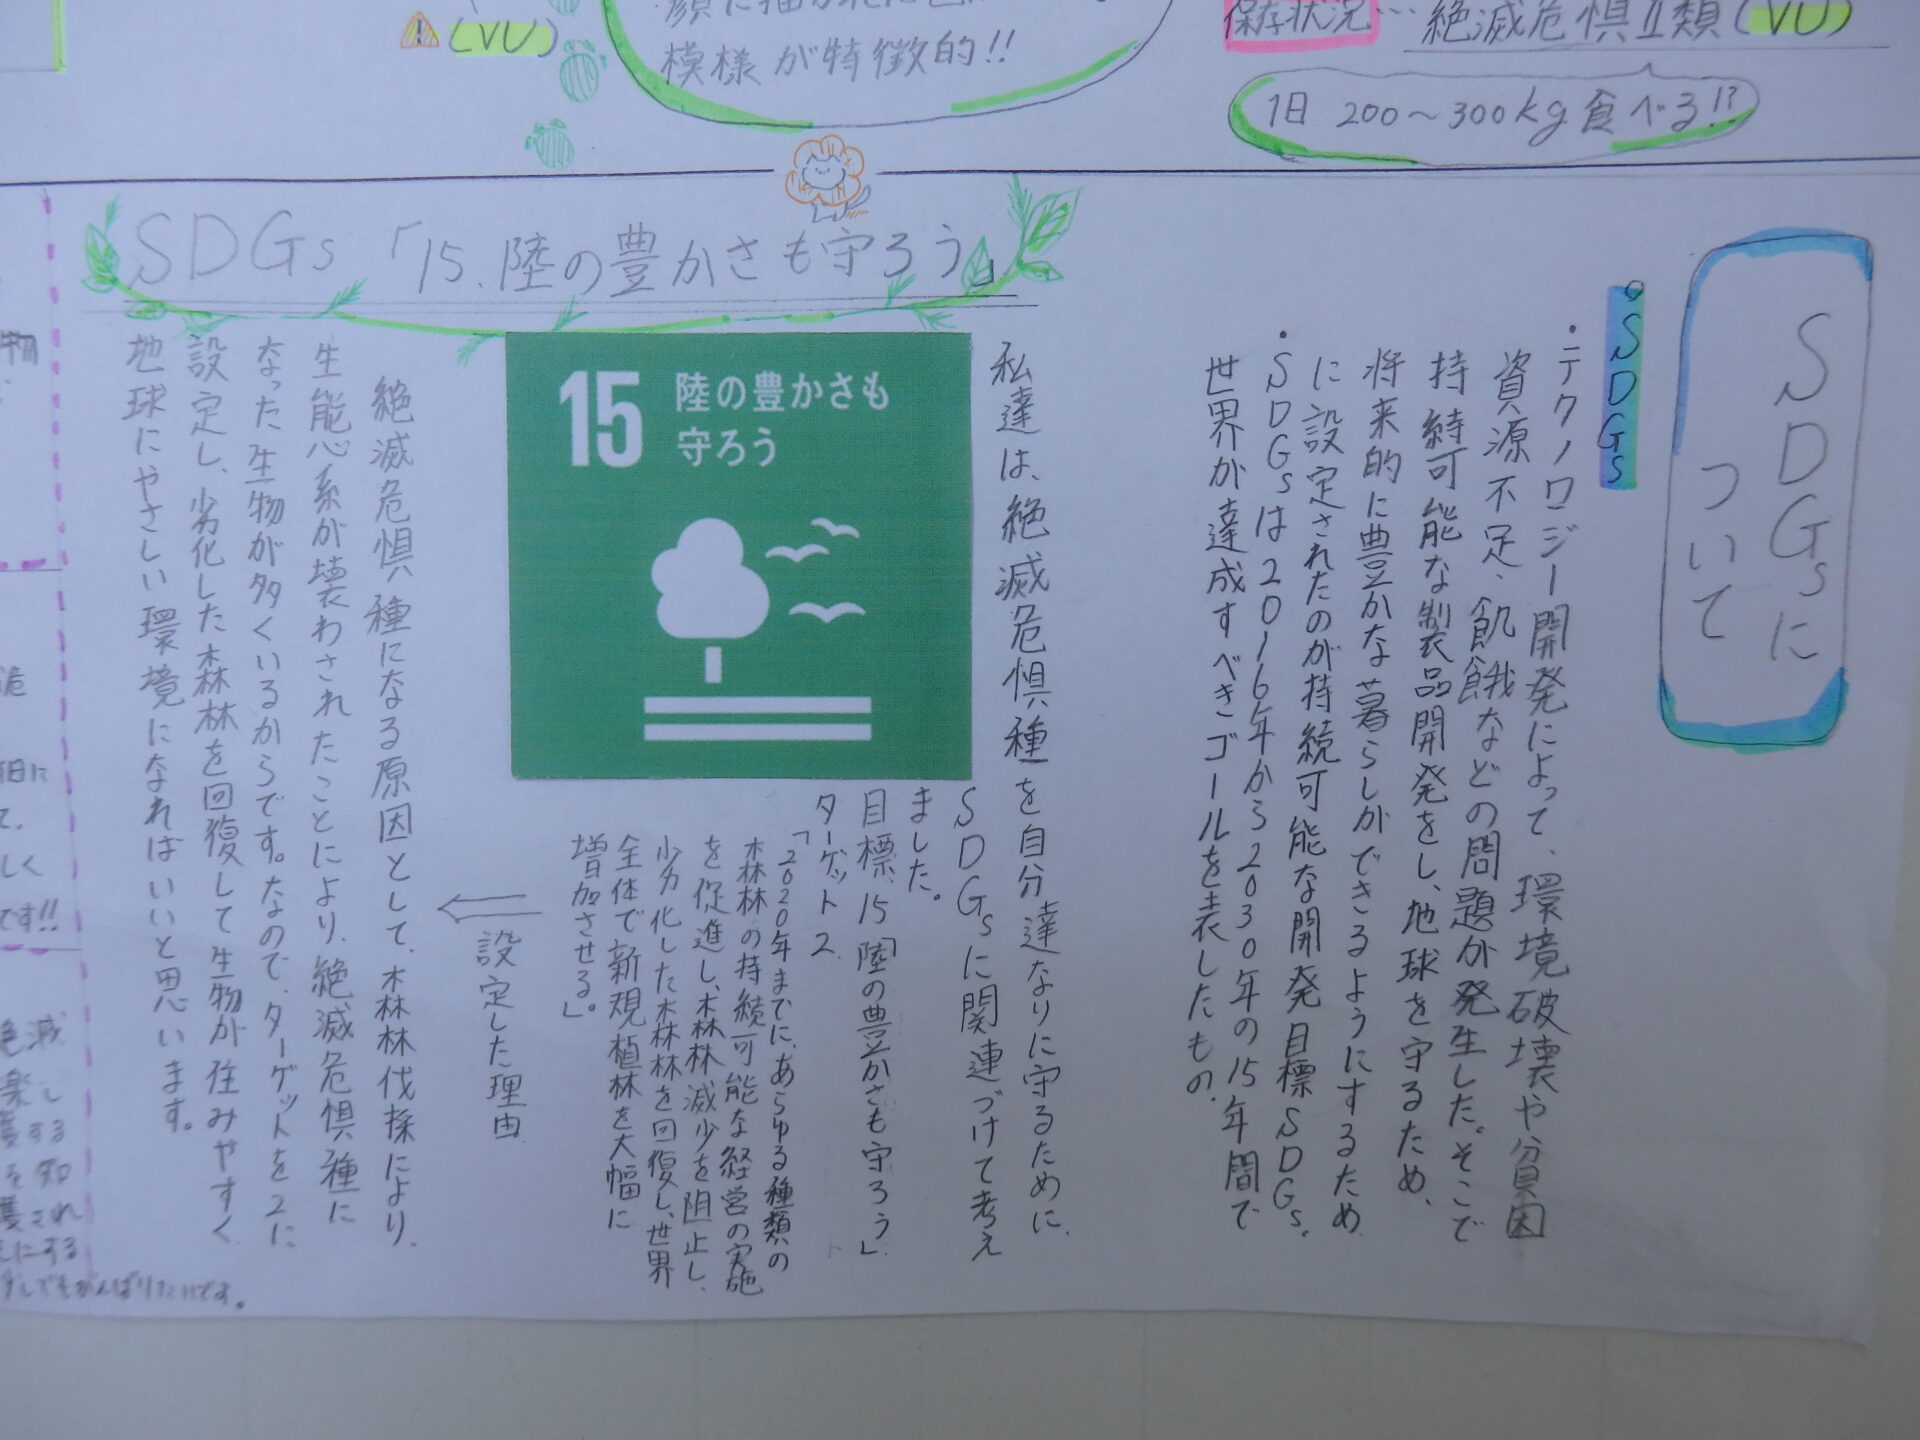 (VU)
模様が特徴的!!
保存状況…絶滅危惧Ⅱ類(VU)
1日 200~300kg食べる!?
SDGsに
ついて
。SDGs
・テクノロジー開発によって、環境破壊や貧困
資源不足、飢餓などの問題が発生した。そこで
持続可能な製品開発をし、地球を守るため、
将来的に豊かな暮らしができるようにするため
に設定されたのが持続可能な開発目標SDGs。
・SDGsは2016年から2030年の15年間で
世界が達成すべきゴールを表したもの。
SDGs「15.陸の豊かさも守ろう」
私達は、絶滅危惧種を自分達なりに守るために、
SDGsに関連づけて考え
ました。
目標、15「陸の豊かさも守ろう」
ターゲット2
「2020年までに、あらゆる種類の
森林の持続可能な経営の実施
を促進し、森林減少を阻止し、
劣化した森林を回復し、世界
全体で新規植林を大幅に
増加させる」。
15 陸の豊かさも
守ろう
設定した理由
絶滅危惧種になる原因として、森林伐採により、
生能系が壊わされたことにより、絶滅危惧種に
なった生物が多くいるからです。なので、ターゲットを2に
設定し、劣化した森林を回復して生物が住みやすく、
地球にやさしい環境になればいいと思います。
物
しく
です!!
絶滅
楽し
する
を知
護され
にする
少しでもがんばりたいです。